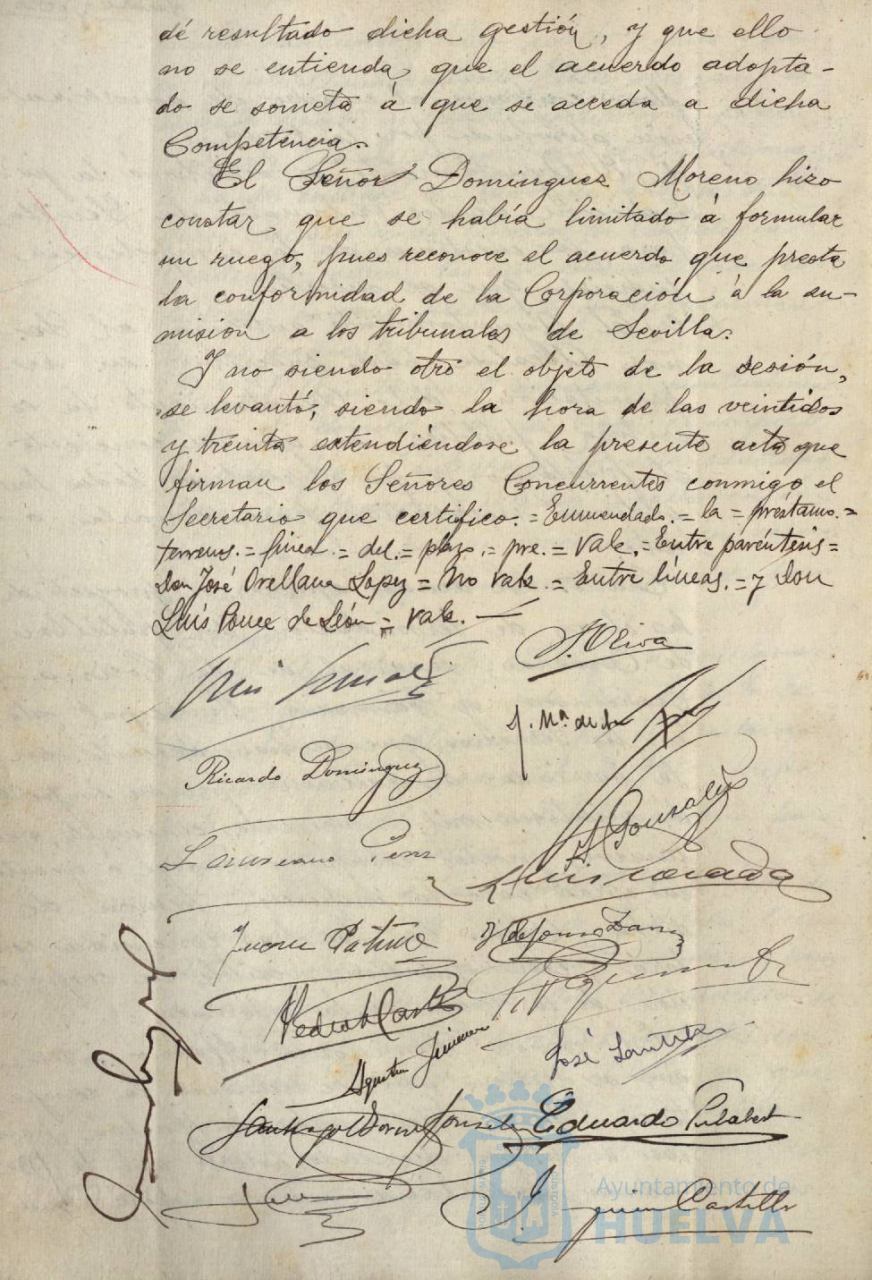 dé resultado dicha gestión, y que ello
no se entienda, que el acuerdo adopta-
do se someta á que se acceda a dicha
Competencia.
El Señor Dominguez Moreno hizo
constar que se había limitado á formular
un ruego, pues reconoce el acuerdo que presta
la conformidad de la Corporación á la su-
misión a los tribunales de Sevilla.
Y no siendo otro el objeto de la sesión,
se levantó, siendo la hora de las veintidos
y treinta extendiéndose la presente acta que
firman los Señores Concurrentes conmigo el
Secretario que certifico. = Enmendado. = la = préstamo. =
terrenos. = finca. = del. = plazo. = pre. = Vale. = Entre paréntesis =
Don José Orellana Lopez = No vale. = Entre líneas. = y Don
Luís Ponce de León = Vale. —
Oliva
J. Mª. de la
Ricardo Dominguez
González
Juan Patiño
Ildefonso
Pedro
Agustín Jimenez
José
Santiago
Eduardo
Castillo
Ayuntamiento de
HUELVA